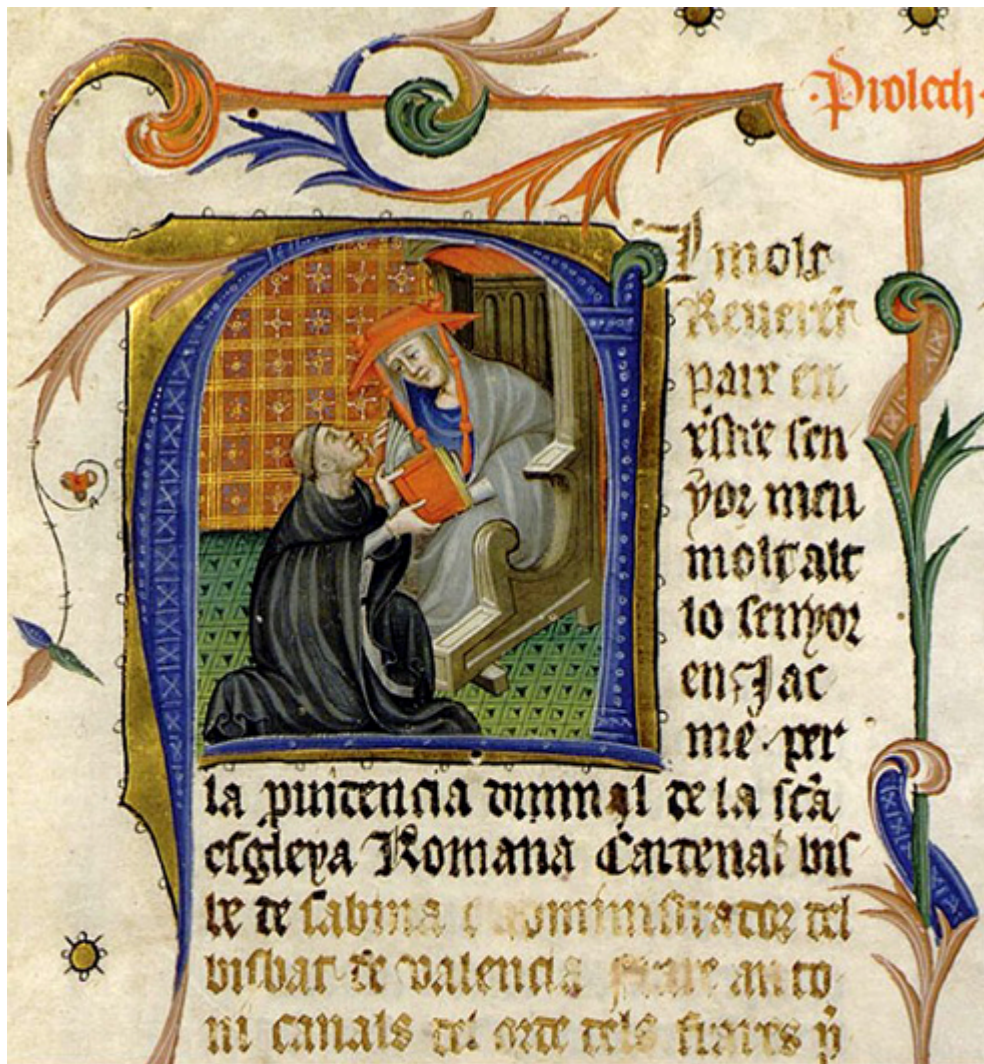 ·Prolech·
Al molt
Reuerēt
pare en
xp̄st re sen
yor meu
molt alt
lo senyor
en Jac
me· per
la puidencia diuinal de la scā
esgleya Romana Cardenal bis
be de sabina e administrador del
bisbat de valencia frare anto
ni canals del orde dels frares p̄